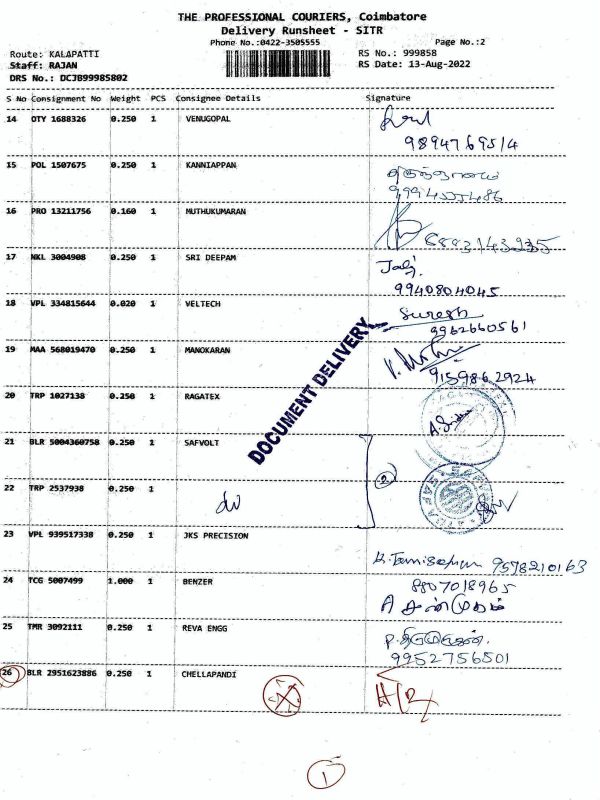 THE PROFESSIONAL COURIERS, Coimbatore
Delivery Runsheet - SITR
Phone No.:0422-3505555 Page No.:2
Route: KALAPATTI RS No.: 999858
Staff: RAJAN RS Date: 13-Aug-2022
DRS No.: DCJB99985802
S No Consignment No Weight PCS Consignee Details Signature
14 OTY 1688326 0.250 1 VENUGOPAL
9894769514
15 POL 1507675 0.250 1 KANNIAPPAN
16 PRO 13211756 0.160 1 MUTHUKUMARAN
6883143235
17 NKL 3004908 0.250 1 SRI DEEPAM
9940804045
18 VPL 334815644 0.020 1 VELTECH Suresh
9962660561
19 MAA 568019470 0.250 1 MANOKARAN
9159862924
DOCUMENT DELIVERY
20 TRP 1027138 0.250 1 RAGATEX
21 BLR 5004360758 0.250 1 SAFVOLT
2
22 TRP 2537938 0.250 1
do
23 VPL 939517338 0.250 1 JKS PRECISION
9578210163
24 TCG 5007499 1.000 1 BENZER 8807018965
A சண்முகம்
25 TMR 3092111 0.250 1 REVA ENGG
9952756501
26 BLR 2951623886 0.250 1 CHELLAPANDI
1